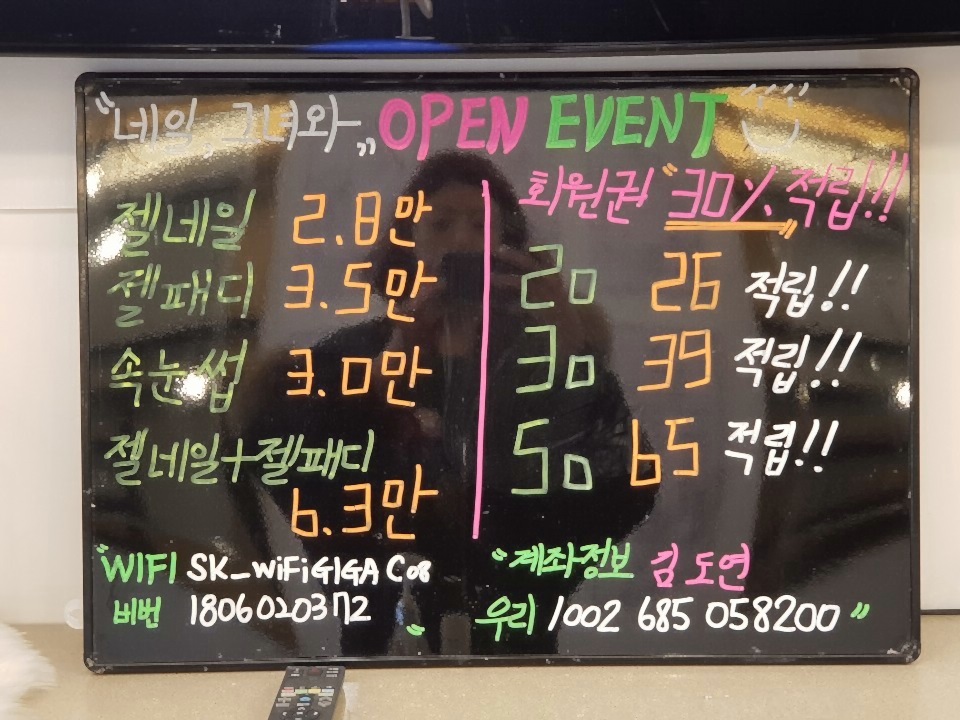 "네일, 그녀와" OPEN EVENT
젤네일 2.8만
젤패디 3.5만
속눈썹 3.0만
젤네일+젤패디
6.3만
회원권 "30% 적립!!"
20 26 적립!!
30 39 적립!!
50 65 적립!!
"WIFI SK_WiFiGIGA C08
비번 1806020372"
"계좌정보 김도연
우리 1002 685 058200"